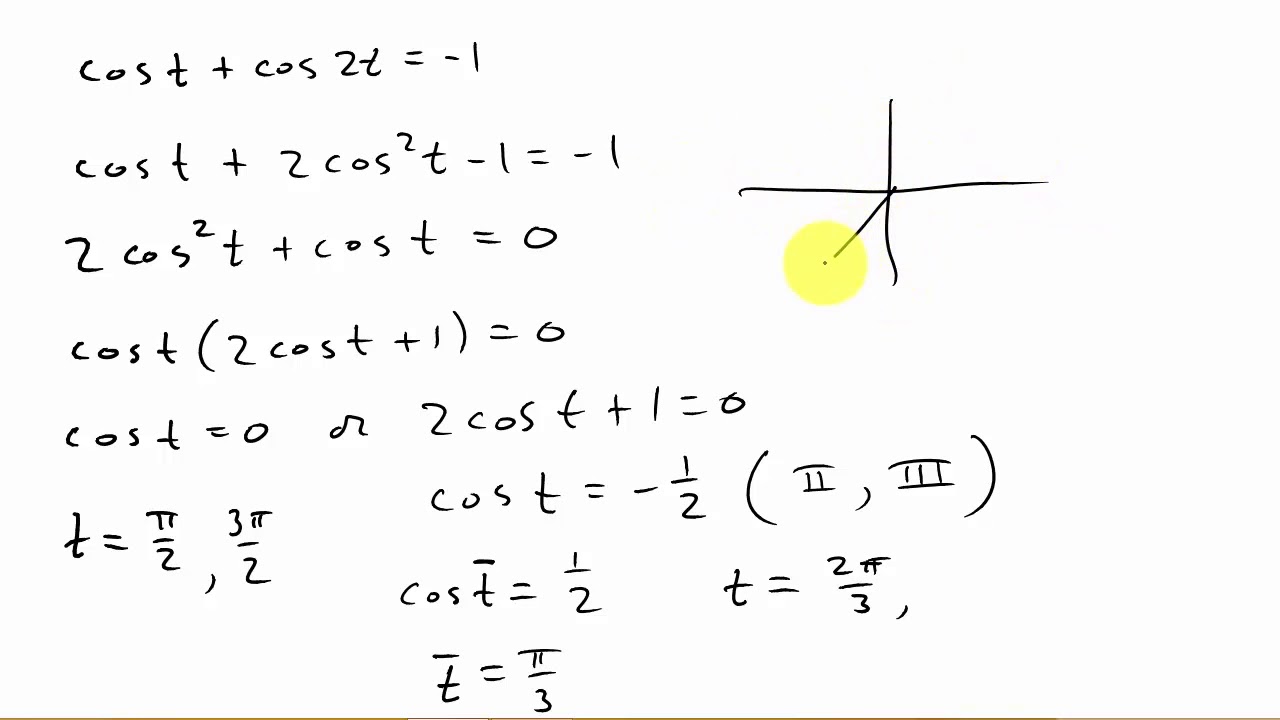 cos t + cos 2t = -1
cos t + 2 cos²t - 1 = -1
2 cos²t + cos t = 0
cos t (2 cos t + 1) = 0
cos t = 0 or 2 cos t + 1 = 0
cos t = -1/2 (II, III)
t = π/2, 3π/2
cos t̄ = 1/2 t = 2π/3,
t̄ = π/3